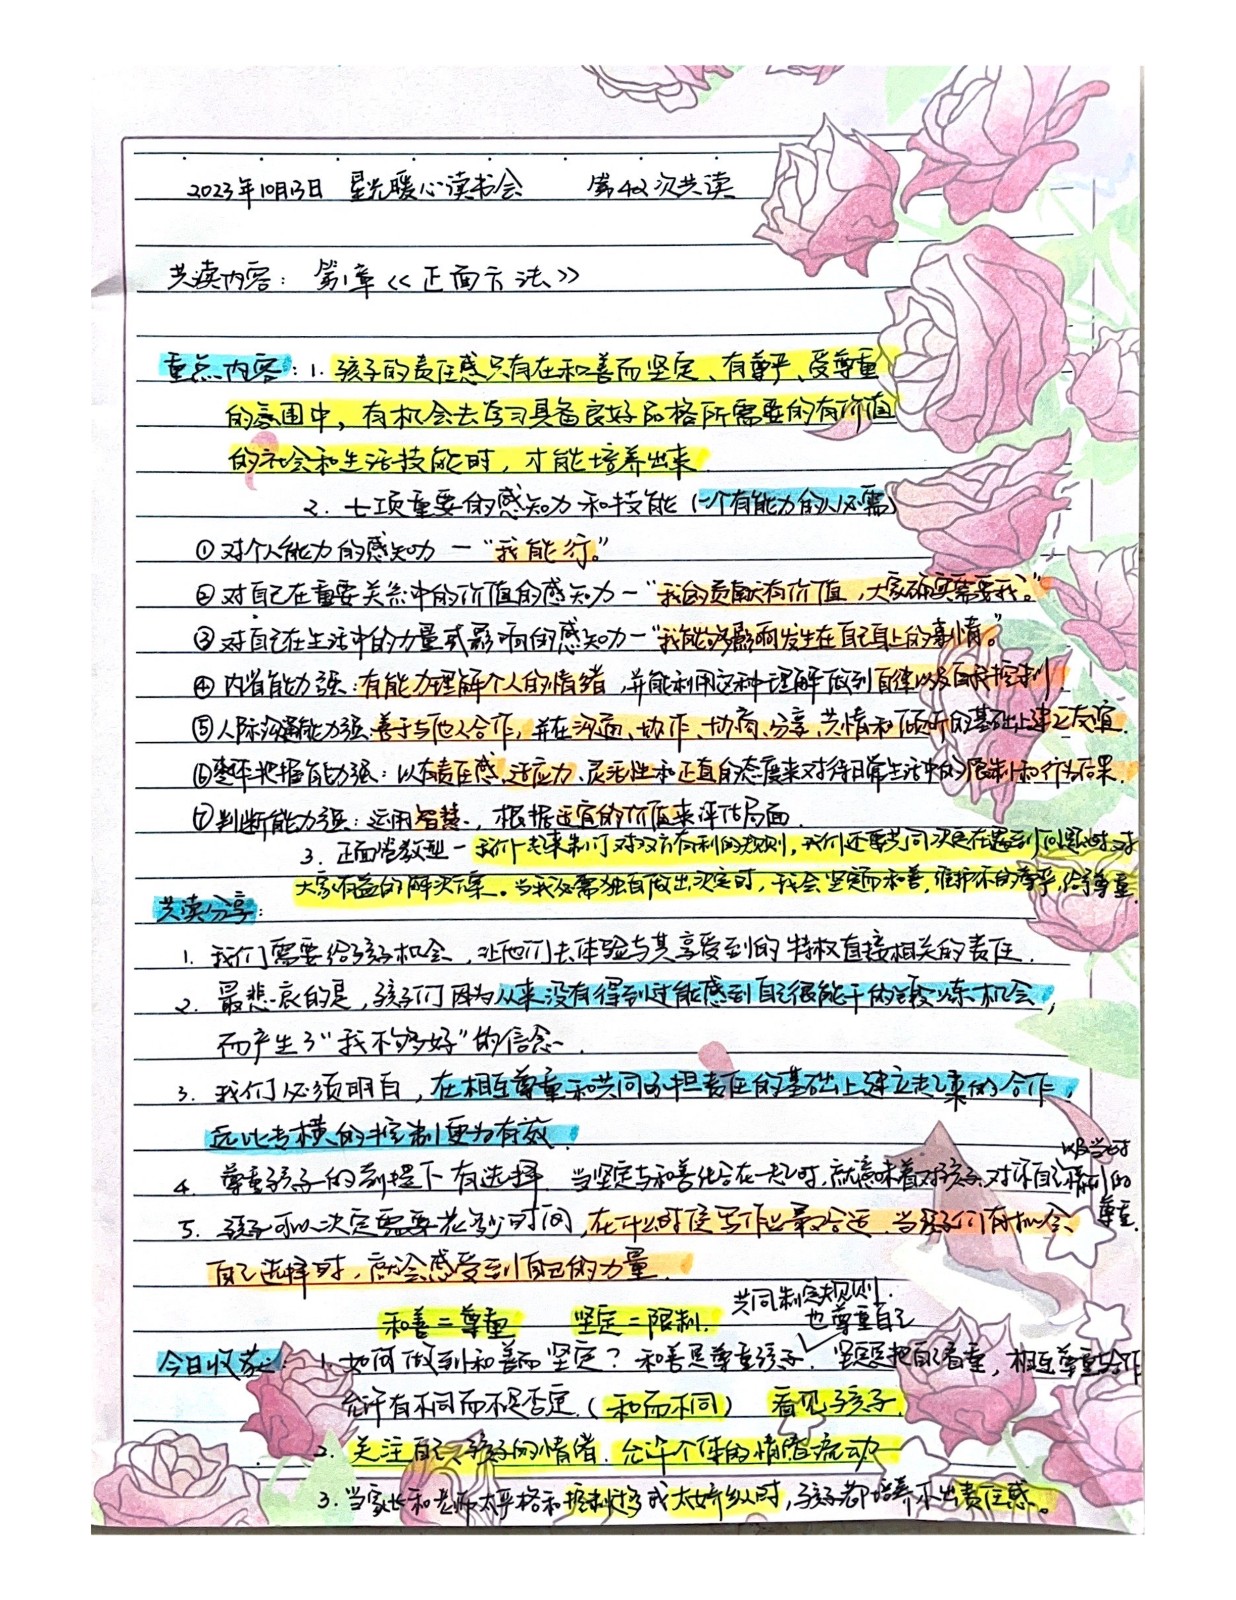 2023年10月13日 星光暖心读书会 第42次共读
共读内容：第1章《正面方法》
重点内容：1. 孩子的责任感只有在和善而坚定、有尊严、受尊重
的氛围中，有机会去学习具备良好品格所需要的有价值
的社会和生活技能时，才能培养出来
2. 七项重要的感知力和技能（一个有能力的人必需）
①对个人能力的感知力—“我能行。”
②对自己在重要关系中的价值的感知力—“我的贡献有价值，大家确实需要我。”
③对自己在生活中的力量或影响的感知力—“我能够影响发生在自己身上的事情。”
④内省能力强：有能力理解个人的情绪，并能利用这种理解做到自律以及自我控制
⑤人际沟通能力强：善于与他人合作，并在沟通、协作、协商、分享、共情和倾听的基础上建立友谊.
⑥整体把握能力强：以有责任感、适应力、灵活性和正直的态度来对待日常生活中的限制和行为后果.
⑦判断能力强：运用智慧，根据适宜的价值来评估局面.
3. 正面管教型—我们一起来制订对双方有利的规则，我们还要共同决定在遇到问题时对
大家有益的解决方案。当我必需独自做出决定时，我会坚定而和善，维护你的尊严，给予尊重.
共读分享：
1. 我们需要给孩子机会，让他们去体验与其享受到的特权直接相关的责任.
2. 最悲哀的是，孩子们因为从来没有得到过能感到自己很能干的锻炼机会，
而产生了“我不够好”的信念.
3. 我们必须明白，在相互尊重和共同承担责任的基础上建立起来的合作，
远比专横的控制更为有效.
以及当时
4. 尊重孩子的前提下有选择. 当坚定与和善化合在一起时，就意味着对孩子.对你自己.情形的
尊重.
5. 孩子可以决定需要花多少时间，在什么时候写作业最合适. 当孩子们有机会
自己选择时，就会感受到自己的力量.
共同制定规则.
和善=尊重 坚定=限制.
也尊重自己
今日收获：1. 如何做到和善而坚定？和善是尊重孩子. 坚定是把自己看重，相互尊重与合作
允许有不同而不是否定.（和而不同） 看见孩子.
2. 关注自己、孩子的情绪. 允许个体的情绪流动
3. 当家长和老师太严格和控制过多或太娇纵时，孩子都培养不出责任感。